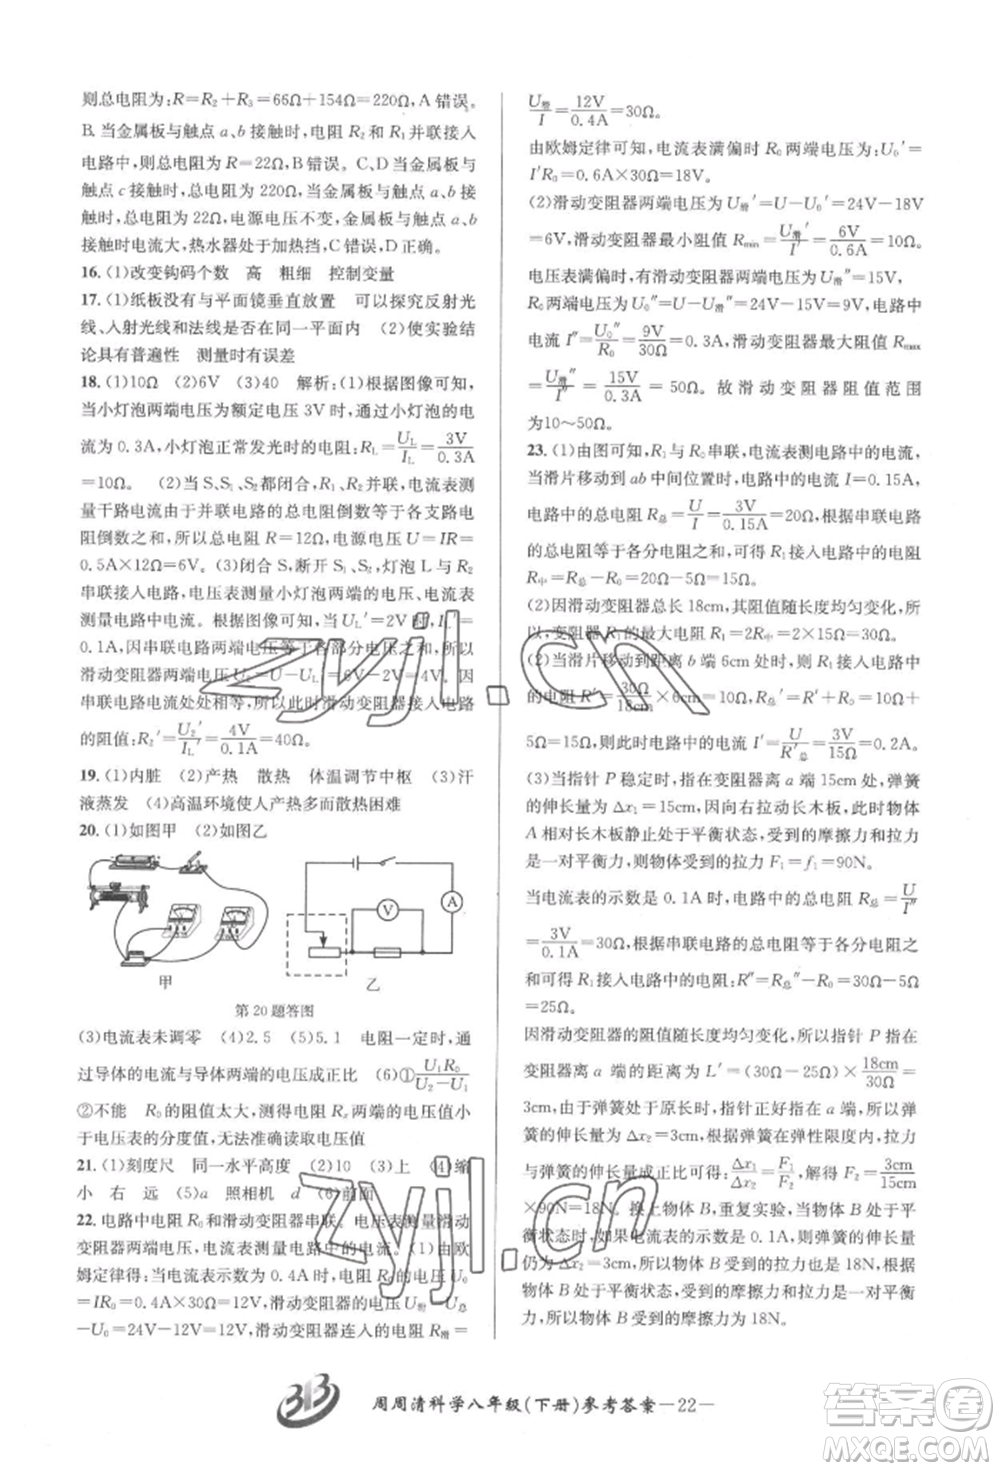 则总电阻为:R=R₂+R₃=66Ω+154Ω=220Ω,A错误。
B.当金属板与触点a、b接触时,电阻R₂和R₁并联接入
电路中,则总电阻为R=22Ω,B错误。C、D当金属板与
触点c接触时,总电阻为220Ω,当金属板与触点a、b接
触时,总电阻为22Ω,电源电压不变,金属板与触点a、b
接触时电流大,热水器处于加热挡,C错误,D正确。
16.(1)改变钩码个数 高 粗细 控制变量
17.(1)纸板没有与平面镜垂直放置 可以探究反射光
线、入射光线和法线是否在同一平面内 (2)使实验结
论具有普遍性 测量时有误差
18.(1)10Ω (2)6V (3)40 解析:(1)根据图像可知,
当小灯泡两端电压为额定电压3V时,通过小灯泡的电
流为0.3A,小灯泡正常发光时的电阻:R_L=U_L/I_L=3V/0.3A
=10Ω。 (2)当S、S₁、S₂都闭合,R₁、R₂并联,电流表测
量干路电流由于并联电路的总电阻倒数等于各支路电
阻倒数之和,所以总电阻R=12Ω,电源电压U=IR=
0.5A×12Ω=6V。(3)闭合S,断开S₁、S₂,灯泡L与R₂
串联接入电路,电压表测量小灯泡两端的电压、电流表
测量电路中电流。由图可知,当U_L′=2V时,I_L′=
0.1A,因串联电路两端电压等于各部分电压之和,所以
滑动变阻器两端电压U₂′=U-U_L′=6V-2V=4V,因
串联电路电流处处相等,所以此时滑动变阻器接入电路
的阻值:R₂′=U₂′/I_L′=4V/0.1A=40Ω。
19.(1)内脏 (2)产热 散热 体温调节中枢 (3)汗
液蒸发 (4)高温环境使人产热多而散热困难
20.(1)如图甲 (2)如图乙
V
A
甲
乙
第20题答图
(3)电流表未调零 (4)2.5 (5)5.1 电阻一定时,通
过导体的电流与导体两端的电压成正比 (6)①U₁R₀/(U₂-U₁)
②不能 R₀的阻值太大,测得电阻Rₓ两端的电压小
于电压表的分度值,无法准确读取电压值
21.(1)刻度尺 同一水平高度 (2)10 (3)上 (4)缩
小 右 远 (5)a 照相机 d (6)前面
22.电路中电阻R₀和滑动变阻器串联。电压表测量滑动
变阻器两端电压,电流表测量电路中的电流。(1)由欧
姆定律得:当电流表示数为0.4A时,R₀两端的电压U₀
=IR₀=0.4A×30Ω=12V,滑动变阻器的电压U滑=U
-U₀=24V-12V=12V,滑动变阻器连入的电阻R滑=
U滑/I=12V/0.4A=30Ω。
由欧姆定律可知,电流表满偏时R₀两端电压为:U₀′=
I′R₀=0.6A×30Ω=18V。
(2)滑动变阻器两端电压为U滑′=U-U₀′=24V-18V
=6V,滑动变阻器最小阻值R_min=U滑′/I′=6V/0.6A=10Ω;
电压表满偏时,有滑动变阻器两端电压为U滑″=15V,
R₀两端电压为U₀″=U-U滑″=24V-15V=9V,电路中
电流I″=U₀″/R₀=9V/30Ω=0.3A,滑动变阻器最大阻值R_max
=U滑″/I″=15V/0.3A=50Ω。故滑动变阻器阻值范围
为10~50Ω。
23.(1)由图可知,R₁与R₀串联,电流表测电路中的电流,
当滑片移动到ab中间位置时,电路中的电流I=0.15A,
电路中的总电阻R总=U/I=3V/0.15A=20Ω,根据串联电路
的总电阻等于各分电阻之和可知,R₁接入电路中的电阻
R中=R总-R₀=20Ω-5Ω=15Ω,
(2)因滑动变阻器总长18cm,其阻值随长度均匀变化,所
以,变阻器R₁的最大电阻R₁=2R中=2×15Ω=30Ω。
(2)当滑片移动到距离b端6cm处时,则R₁接入电路中
的电阻R′=30Ω/18cm×6cm=10Ω,则R总′=R′+R₀=10Ω+
5Ω=15Ω,所以,则此时电路中的电流I′=U/R总′=3V/15Ω=0.2A。
(3)当指针P稳定时,此时在变阻器a端15cm处,弹簧
的伸长量为Δx₁=15cm,因向右拉动长木板,此时物体
A相对长木板静止处于平衡状态,受到的摩擦力和拉力
是一对平衡力,则物体受到的拉力F₁=f₁=90N。
当电流表的示数是0.1A时,电路中的总电阻R总″=U/I″
=3V/0.1A=30Ω,根据串联电路的总电阻等于各分电阻之
和可得R₁接入电路中的电阻:R″=R总″-R₀=30Ω-5Ω
=25Ω。
因滑动变阻器的阻值随长度均匀变化,所以指针P指在
变阻器a端的距离为L′=(30Ω-25Ω)×18cm/30Ω=
3cm,由于弹簧处于原长时,指针正好指在a端,所以弹
簧的伸长量为Δx₂=3cm,根据弹簧在弹性限度内,拉力
与弹簧的伸长量成正比得:Δx₂/Δx₁=F₂/F₁,解得F₂=3cm/15cm
×90N=18N。换上物体B,重复实验,当物体B处于平
衡状态时,如果电流表的示数是0.1A,弹簧的伸长量
仍为Δx₂=3cm,则物体B受到的拉力也为18N,因此时
物体B处于平衡状态,受到的摩擦力和拉力是一对平衡
力,所以物体B受到的摩擦力为18N。
周周清科学八年级(下册)参考答案—22—
zyjl.cn
zyjl.cn
答案圈
MXQE.COM